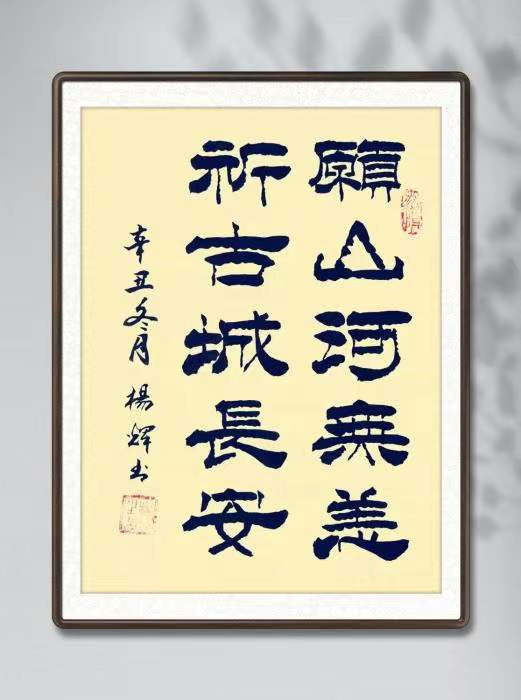 願山河無恙
祈古城長安
辛丑冬月 楊輝书